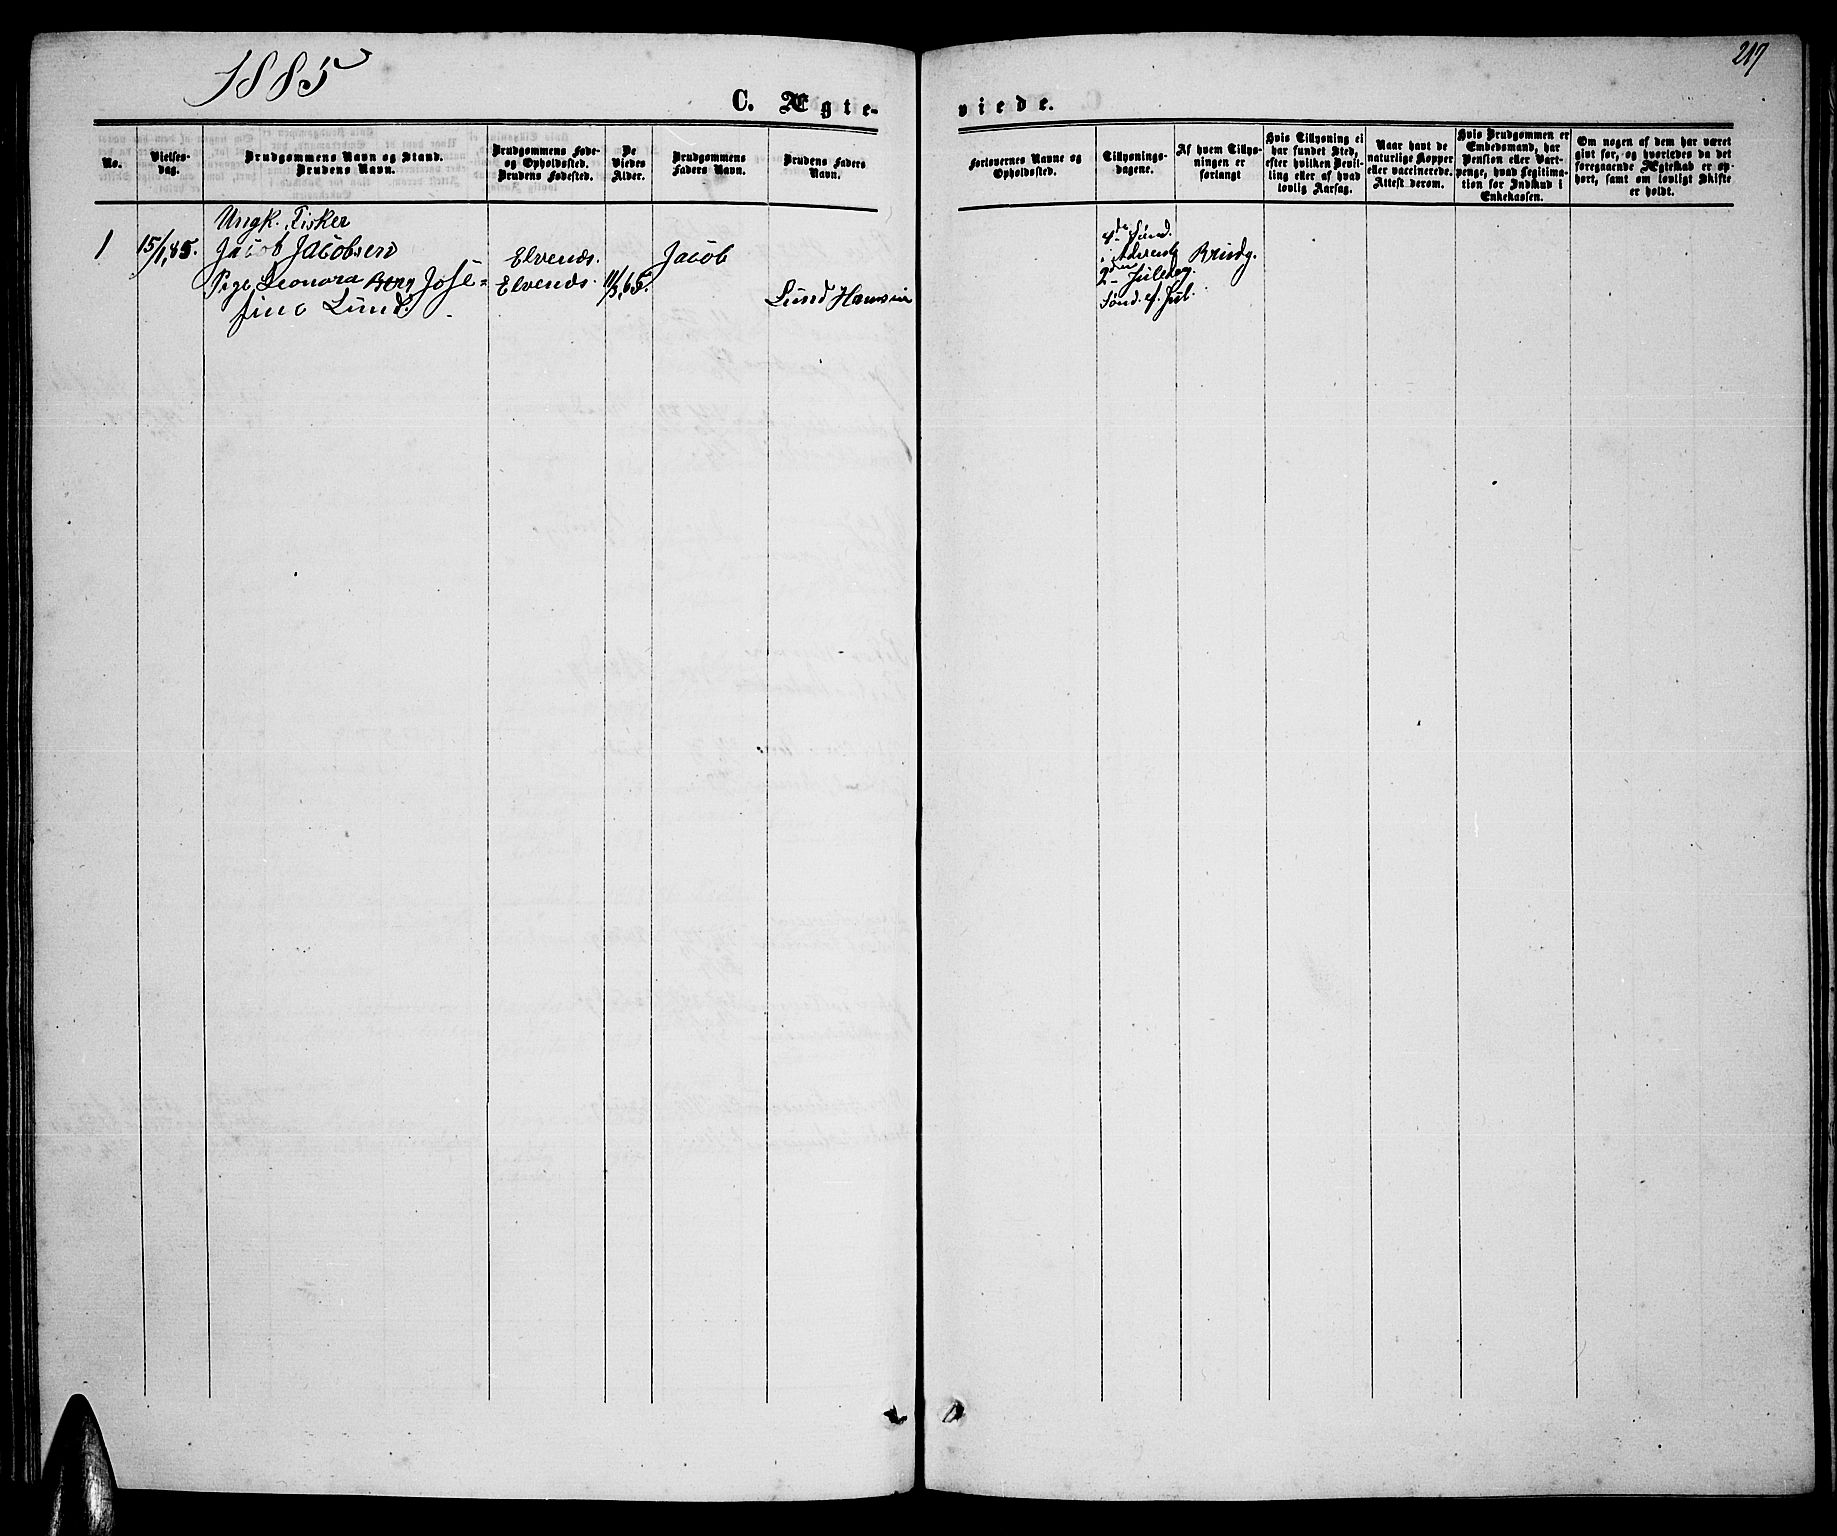 1885
217
C. Ægte-
viede.
No.
Vielses-
dag.
Brudgommens Navn og Stand.
Brudens Navn.
Brudgommens Føde-
og Opholdssted.
Brudens Fødested.
De
Viedes
Alder.
Brudgommens
Faders Navn.
Brudens Faders
Navn.
Forlovernes Navne og
Opholdssted.
Tillysnings-
dagene.
Af hvem Tillys-
ningen er
forlangt
Hvis Tillysning ei
har fundet Sted,
efter hvilken Bevil-
ling eller af hvad
lovlig Aarsag.
Naar havt de
naturlige Kopper
eller vaccinerede.
Attest derom.
Hvis Brudgommen er
Embedsmand, har
Pension eller Vart-
penge, hvad Legitima-
tion for Indskud i
Enkekassen.
Om nogen af dem har været
givt før, og hvorledes da det
foregaaende Ægteskab er op-
hørt, samt om lovligt Skifte
er holdt.
1
15/1,85.
Ungk. Fisker
Jacob Jacobsen
Pige Leonora Berg Jose=
fine Lund.
Elvends.
Elvends.
11/3,65.
Jacob
Lund Hansen
4de Sønd.
i Advent
2den Juledag.
Sønd. e. Jul.
Brudg.